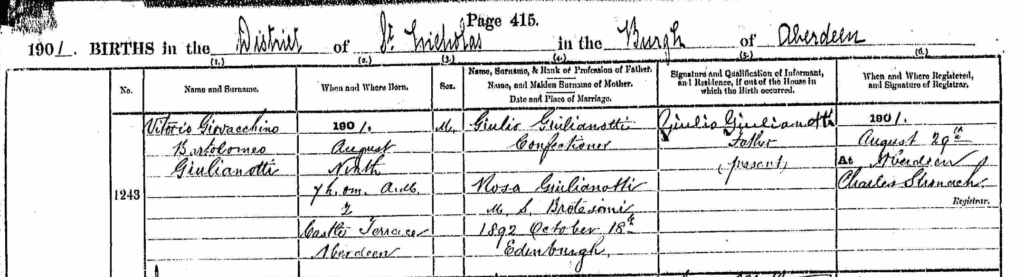 Page 415.
1901. BIRTHS in the District of St. Nicholas in the Burgh of Aberdeen
(1.) (2.) (3.) (4.) (5.) (6.)
No.
Name and Surname.
When and Where Born.
Sex.
Name, Surname, & Rank or Profession of Father.
Name, and Maiden Surname of Mother.
Date and Place of Marriage.
Signature and Qualification of Informant,
and Residence, if out of the House in
which the Birth occurred.
When and Where Registered,
and Signature of Registrar.
1243
Vitorio Giovacchino
Bartolomeo
Giulianotti
1901.
August
Ninth
7h. 0m. A.M.
2
Castle Terrace
Aberdeen
M.
Giulio Giulianotti
Confectioner
Rosa Giulianotti
M. S. Brotesimi
1892 October 18th
Edinburgh
Giulio Giulianotti
Father
(present)
1901.
August 29th
At Aberdeen
Charles Stronach
Registrar.